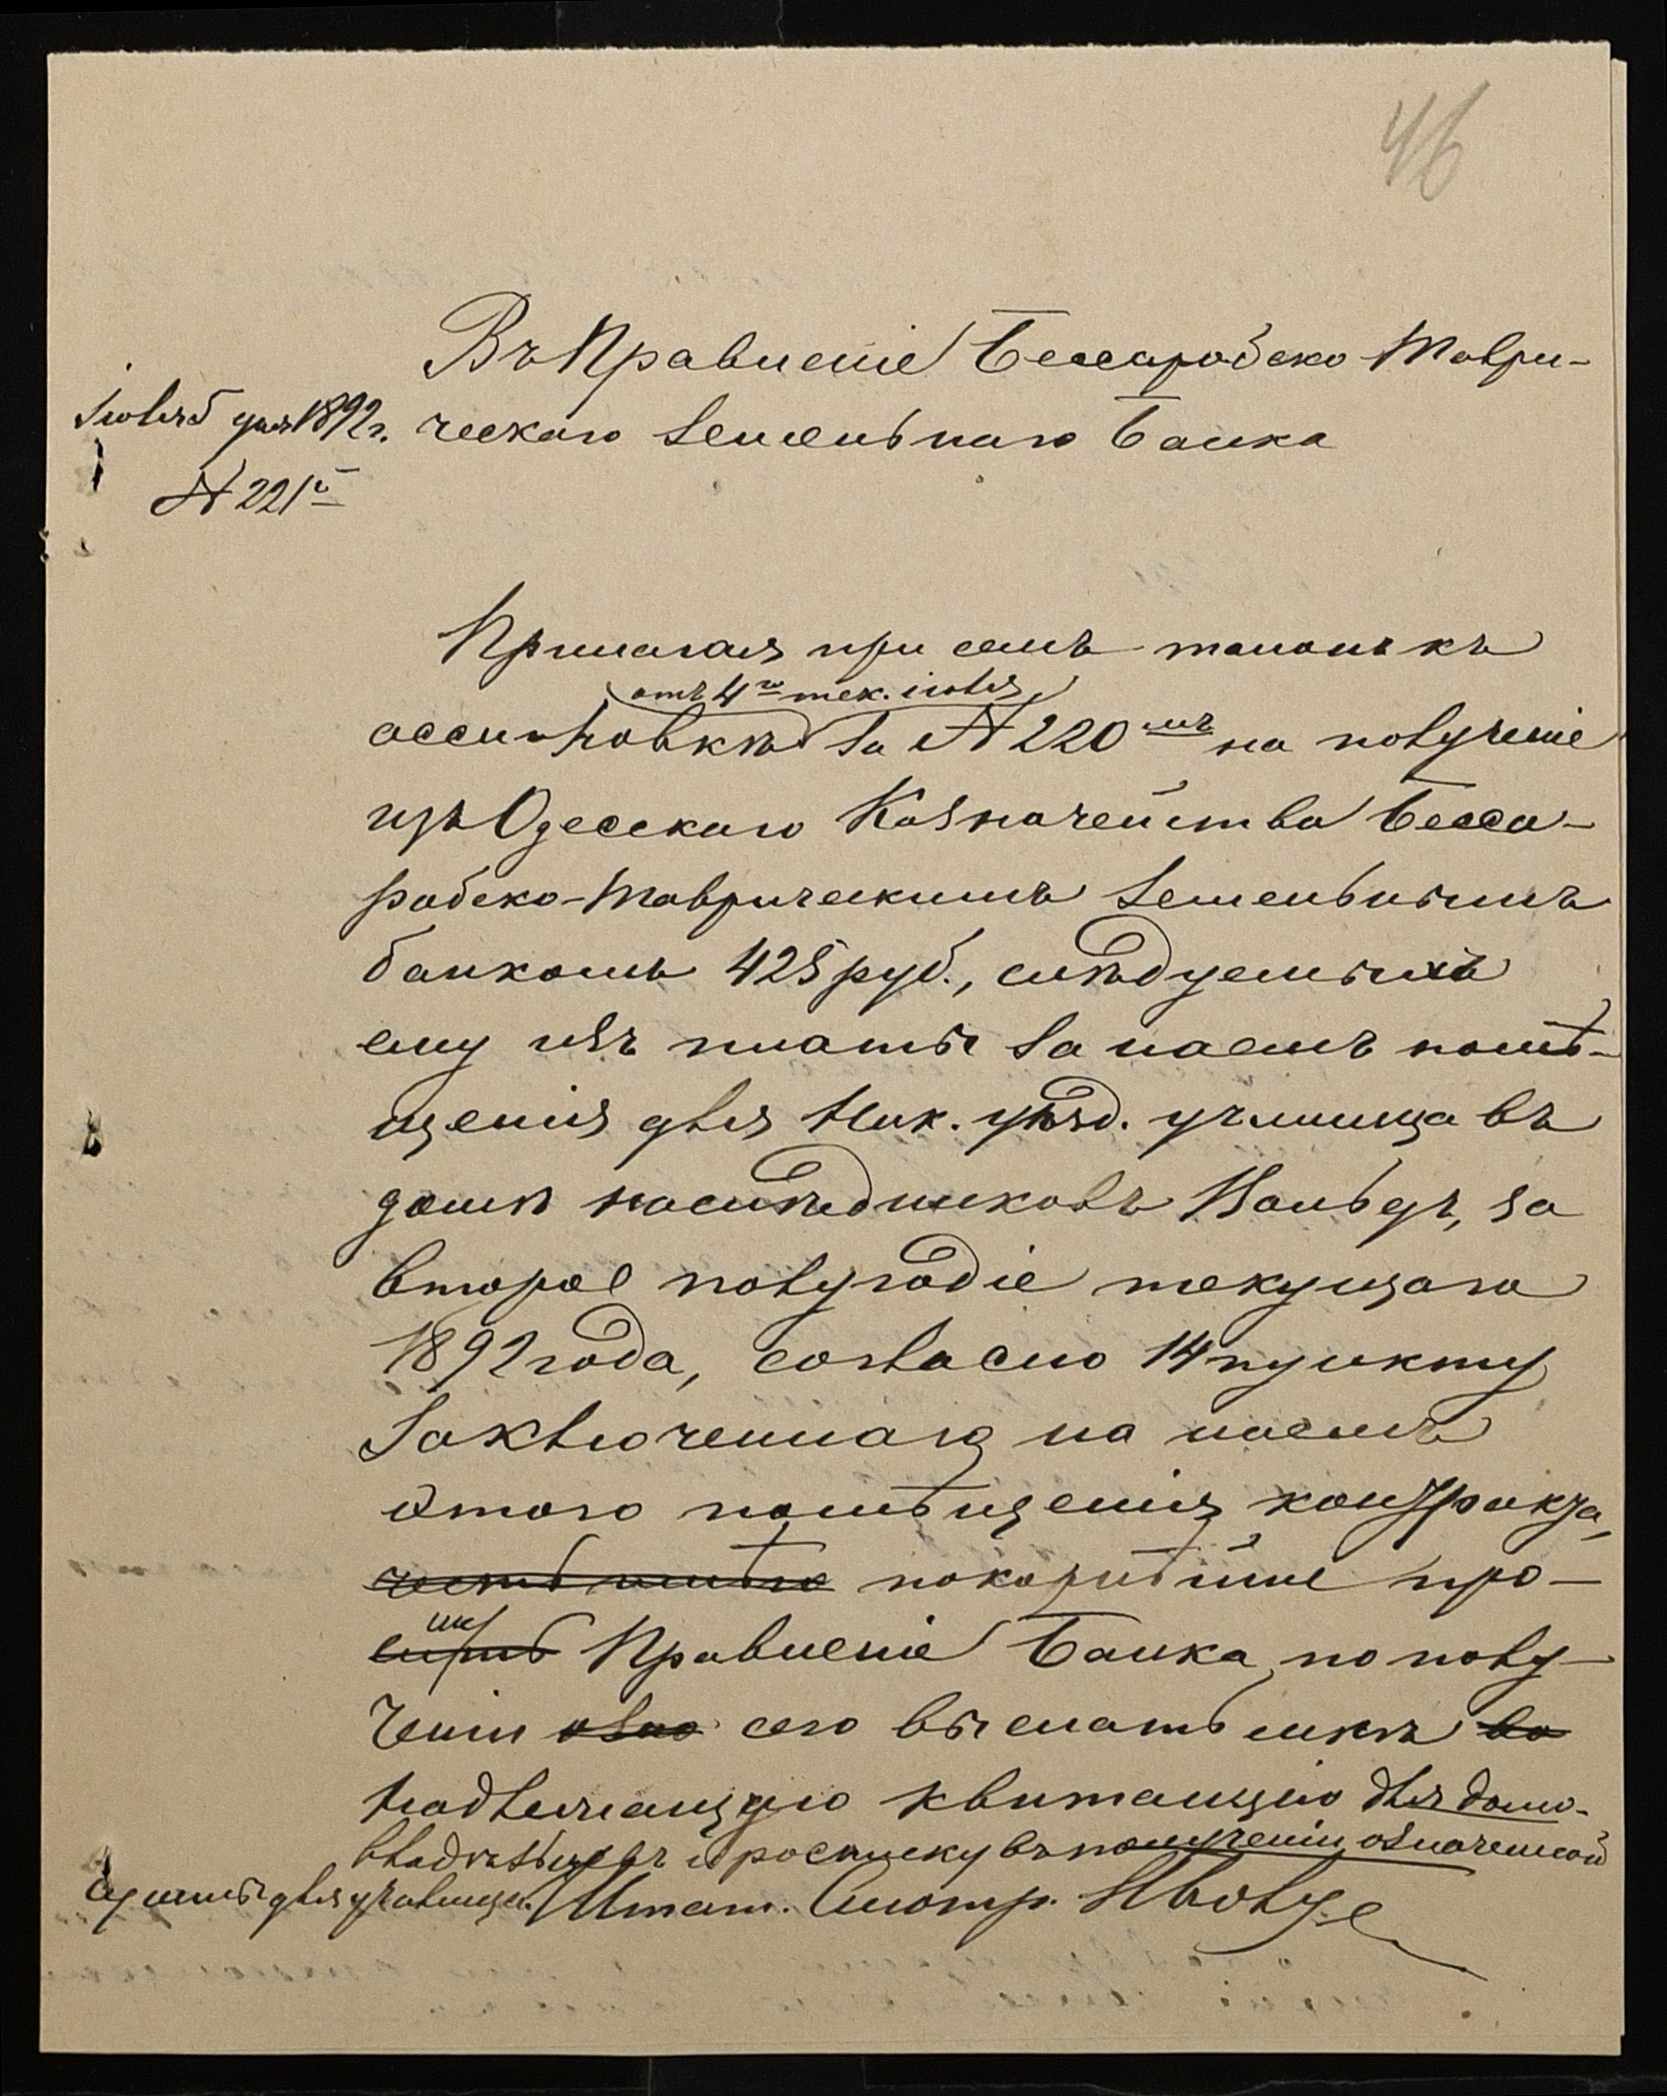 46
Въ Правленіе Бессарабско-Таври-
Іюля 5 дня 1892 г. ческаго Земельнаго Банка
№ 221й
Прилагая при семъ талонъ къ
отъ 4го тек. іюля
ассигновкѣ за № 220мъ на полученіе
изъ Одесскаго Казначейства Бесса-
рабско-Таврическимъ Земельнымъ
банкомъ 425 руб., слѣдуемыхъ
ему изъ платы за наемъ помѣ-
щенія для Ник. уѣзд. училища въ
домѣ наслѣдниковъ, за
второе полугодіе текущаго
1892 года, согласно 14 пункту
заключеннаго на наемъ
этого помѣщенія контракта,
честь имѣю покорнѣйше про-
шу Правленіе Банка, по полу-
ченіи сего выслать мнѣ во
надлежащую квитанцію для домо-
владѣльцевъ и росписку въ полученіи означенной
суммы для училища. Штат. Смотр.